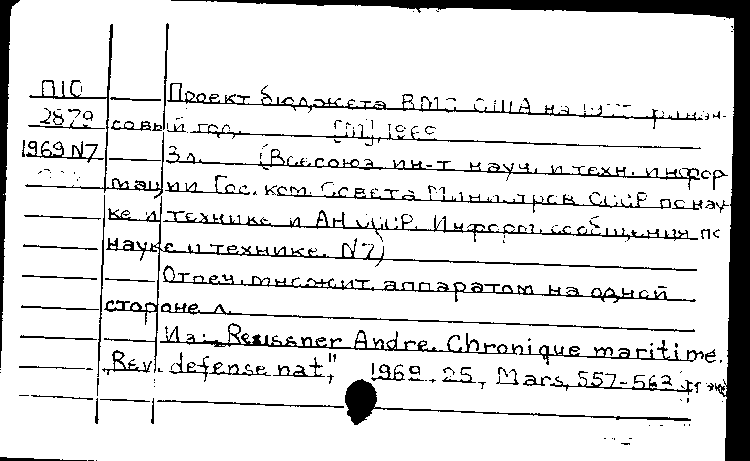 П10 Проект бюджета ВМС США на финан-
2879 совый год. [М], 1969
1969 N7 3л. (Всесоюз. ин-т науч. и техн. инфор
мации Гос. ком. Совета Министров СССР по нау
ке и технике и АН СССР. Информ. сообщения по
науке и технике. N7)
Отпеч. множит. аппаратом на одной
стороне л.
Из: Reussner Andre. Chronique maritime.
"Rev. defense nat," 1969, 25, Mars, 557-563